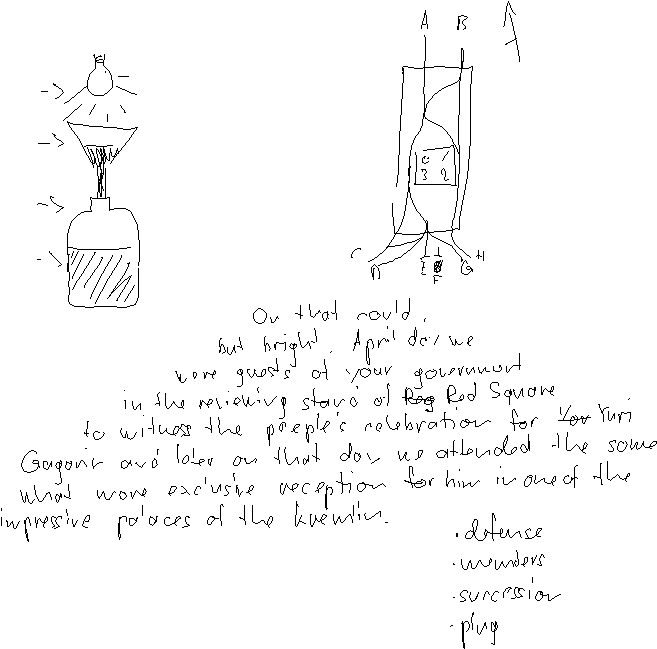 A B
0 1
3 2
C D E F G H
On that could,
but bright, April day we
were guests of your government
in the reviewing stand of Red Square
to witness the people's celebration for Yuri
Gagarin and later on that day we attended the some
what more exclusive reception for him in one of the
impressive palaces of the Kremlin.
· defense
· wemders
· surcession
· plug